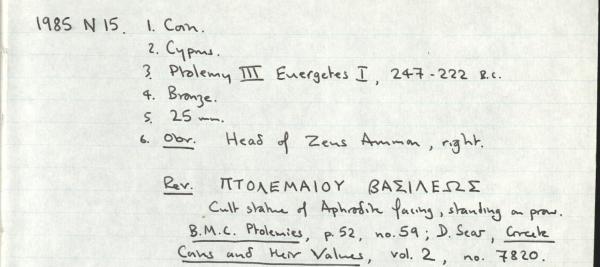 1985 N 15. 1. Coin.
2. Cyprus.
3. Ptolemy III Euergetes I, 247-222 B.C.
4. Bronze.
5. 25 mm.
6. Obv. Head of Zeus Ammon, right.
Rev. ΠΤΟΛΕΜΑΙΟΥ ΒΑΣΙΛΕΩΣ
Cult statue of Aphrodite facing, standing on prow.
B.M.C. Ptolemies, p.52, no.59; D. Sear, Greek
Coins and their Values, vol. 2, no. 7820.